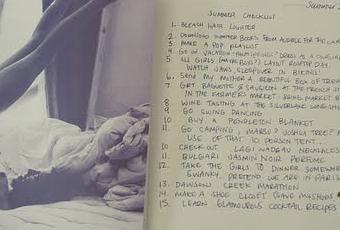 Summer
SUMMER CHECKLIST
1. BLEACH HAIR LIGHTER
2. DOWNLOAD SUMMER BOOKS FROM AUDIBLE FOR THE CAR
3. MAKE A POP PLAYLIST
4. GO ON VACATION - PALM SPRINGS? DRESS AS A
5. ALL GIRLS (MAYBE BOYS?) LAYOUT ROOFTOP DAY.
WATCH JAWS, SLEEPOVER IN BIKINIS!
6. SEND MY MOTHER A BEAUTIFUL BOX OF TREA
7. GET BAGUETTE & SAUCISON AT THE FRENCH ST
IN THE FARMERS MARKET. BRING MARKET B
8. WINE TASTING AT THE SILVERLAKE WINE SHO
9. GO SWING DANCING
10. BUY A PENDLETON BLANKET
11. GO CAMPING, MARSU? JOSHUA TREE?
USE OF THAT 10 PERSON TENT...
10 CHECK OUT GAGI NADEAU NECKLACES
11. BULGARI JASMIN NOIR PERFUME
12. TAKE THE GIRLS TO DINNER SOMEWHE
SWANKY, PRETEND WE ARE IN PARIS
13. DAWSONS CREEK MARATHON
14. MAKE A SHOE CLOSET
15. LEARN GLAMOUROUS COCKTAIL RECIPES